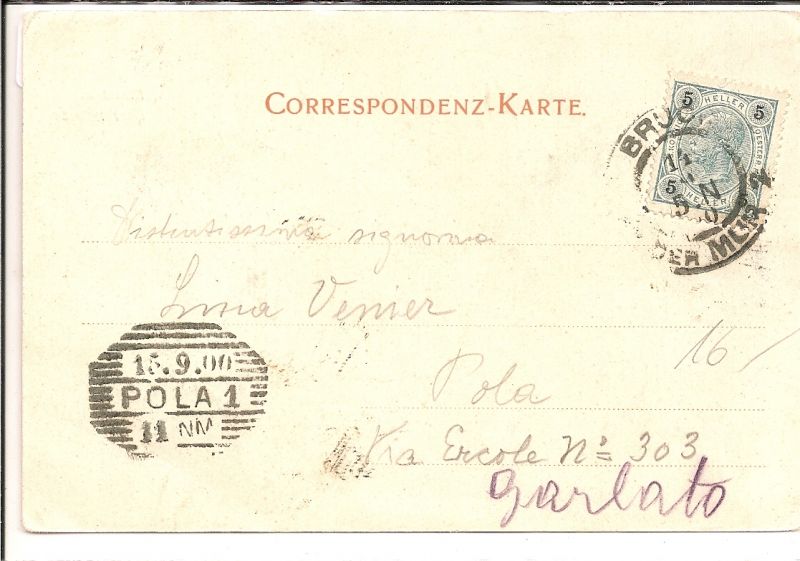 CORRESPONDENZ-KARTE.
5 HELLER 5
5 HELLER 5
BRUCK
DER MUR 2
Distintissima signorina
Lina Venier
16/
Pola
Via Ercole Nº 303
Garlato
15.9.00
POLA 1
11 NM